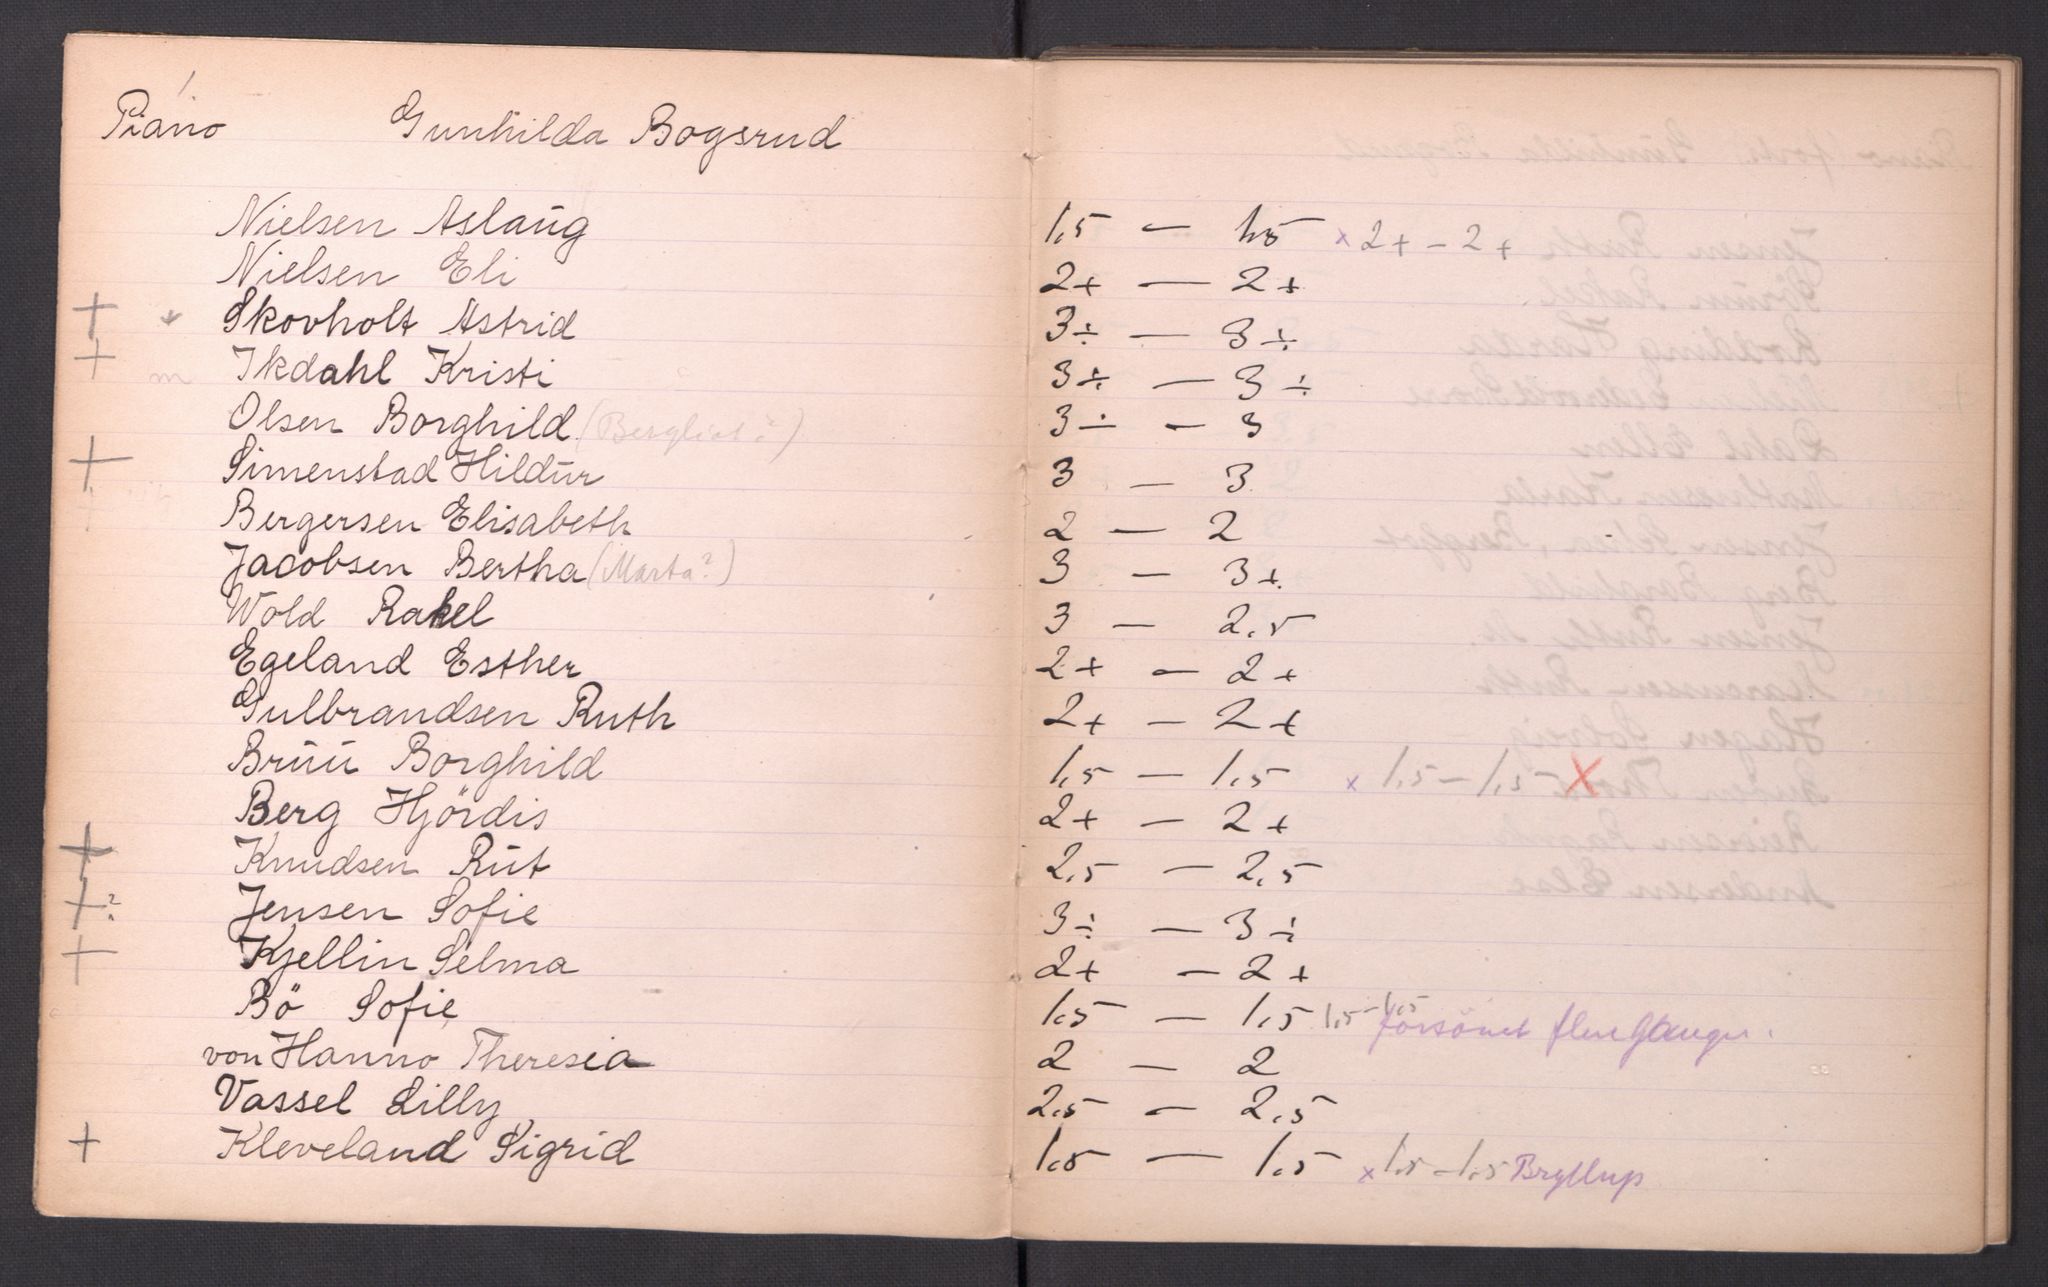 Piano Gunhilda Bogsrud
Nielsen Aslaug 1,5 — 1,5 × 2+ – 2+
Nielsen Eli 2+ — 2+
+ Skovholt Astrid 3÷ — 3÷
+ m Ikdahl Kristi 3÷ — 3÷
Olsen Borghild (Bergliot?) 3÷ — 3
+ Simenstad Hildur 3 — 3
+ Bergersen Elisabeth 2 — 2
Jacobsen Bertha (Marta?) 3 — 3+
Wold Rakel 3 — 2,5
Egeland Esther 2+ — 2+
Gulbrandsen Ruth 2+ — 2+
Bruu Borghild 1,5 — 1,5 × 1,5 – 1,5 X
Berg Hjördis 2+ — 2+
+ Knudsen Rut 2,5 — 2,5
+? Jensen Sofie 3÷ — 3÷
+ Kjellin Selma 2+ — 2+
Bö Sofie 1,5 — 1,5 1,5 – 1,5 forsömt flere Ganger.
von Hanno Theresia 2 — 2
Vassel Lilly 2,5 — 2,5
+ Kleveland Sigrid 1,5 — 1,5 × 1,5 – 1,5 Bryllup